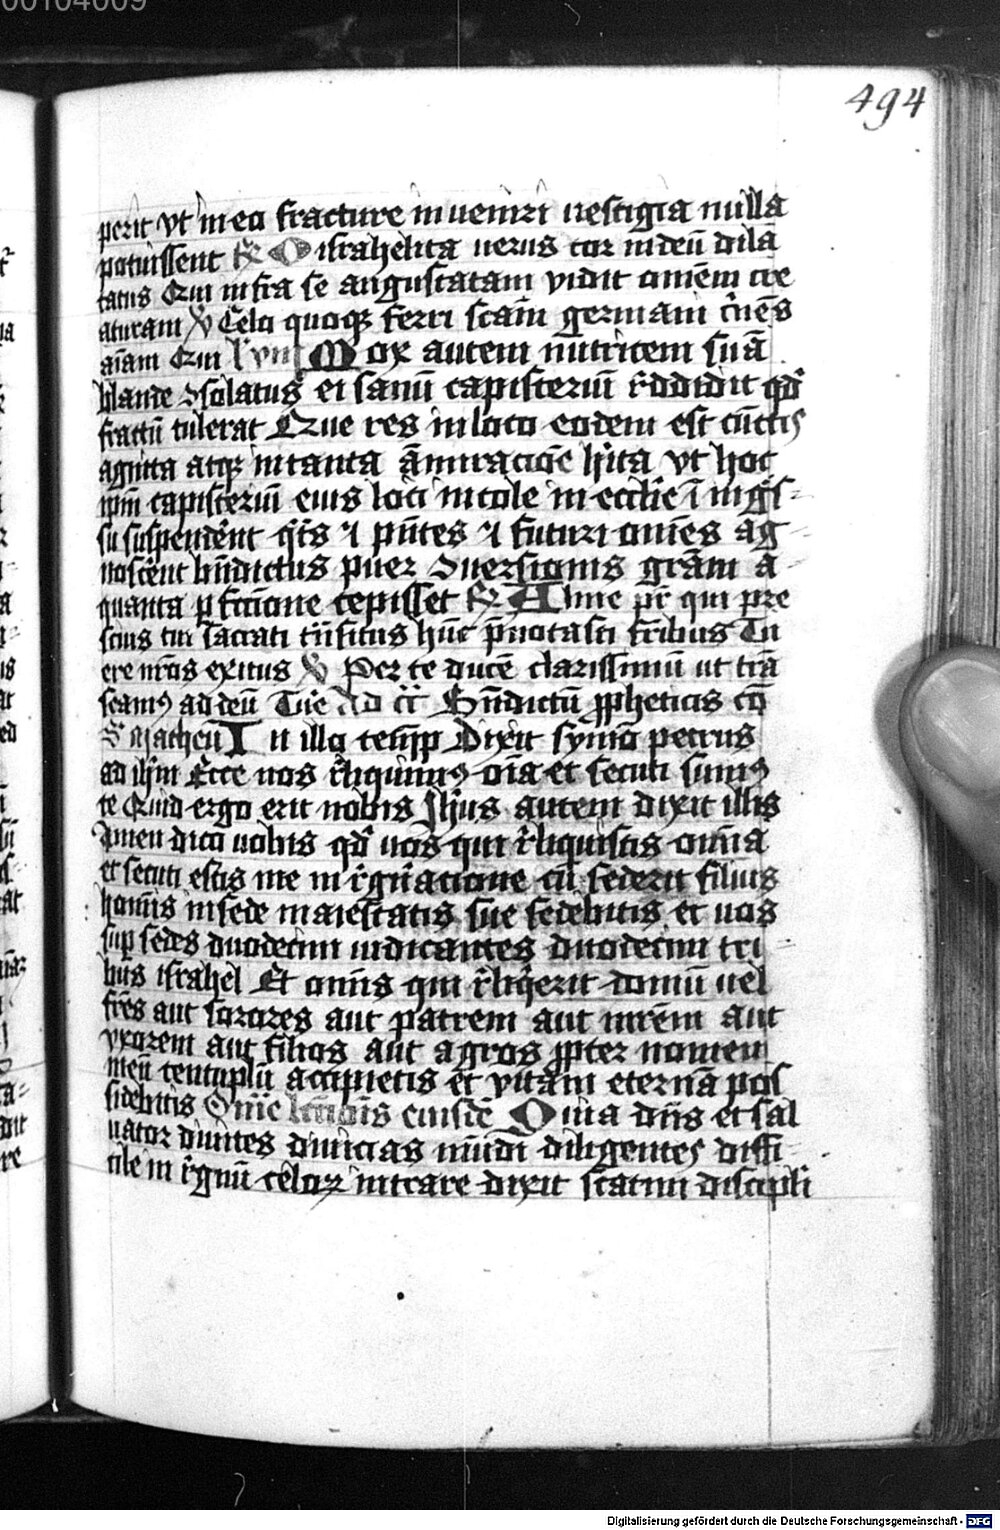 00104009
494
perit vt in ea fracture inueniri uestigia nulla
potuissent R̃ O israhelita uerus cor in deū dila
tatus Qui infra se angustatam vidit om̄em cre
aturam V̷ Celo quoqꝫ ferri sc̄am germani c̄nēs
aīam Qui lviii Mox autem nutricem suā
blande ↄsolatus ei sanū capisteriū r̄ddidit qd̄
fractū tulerat Que res in loco eodem est cūctis
agnita atqꝫ in tanta āmiracōe h̄ita vt hoc
ip̄m capisteriū eius loci incole in eccl̄ie īngr̄s-
su suspenderēt qt̄s ⁊ p̄ntes ⁊ futuri om̄es ag-
noscerēt bn̄dictus puer ↄuersionis gr̄am a-
quanta ꝑfectione cepisset R̃ Alme pr̄ qui pre
scius tui sacrati trn̄situs hūc p̄notasti fr̄ibus Tu
ere nr̄os exitus V̷ Per te ducē clarissimū ut trā
seamꝰ ad deū Tue Ad cī Bn̄dictū ꝓpheticis
S matheū In illo temꝑ Dixit symō petrus
ad ih̄m Ecce nos r̄liquimꝰ oīa et secuti sumꝰ
te Quid ergo erit nobis Jh̄us autem dixit illis
Amen dico uobis qd̄ uos qui r̄liquistis omīa
et secuti estis me in r̄gn̄atione cū sederit filius
homīs in sede maiestatis sue sedebitis et uos
suꝑ sedes duodecim iudicantes duodecim tri-
bus israhel Et omīs qui r̄liq̄erit domū uel
fr̄es aut sorores aut patrem aut mr̄em aut
vxorem aut filios aut agros ꝓpter nomen
meū centuplū accipietis et vitam eternā pos
sidebitis eiusdē Quia dn̄s et sal
uator diuites diuicias mūdi diligentes diffi-
cile in r̄gnū celoꝝ intrare dixit statim discipli
Digitalisierung gefördert durch die Deutsche Forschungsgemeinschaft - DFG